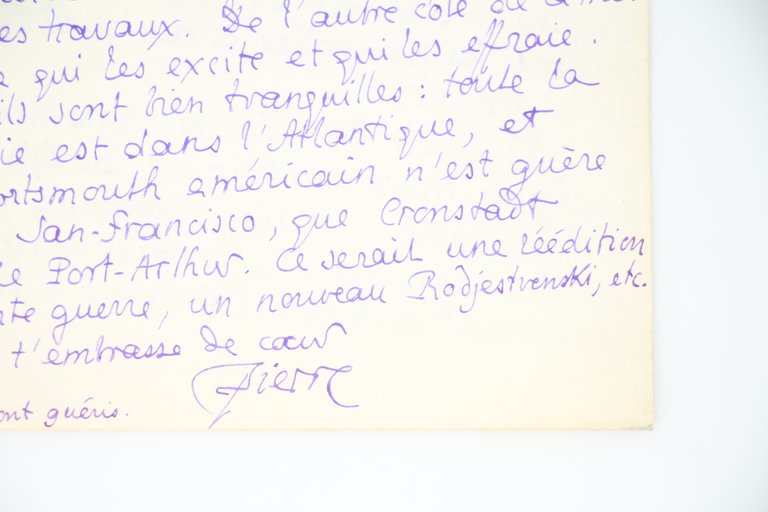 es travaux. De l'autre côté de
qui les excite et qui les effraie.
ils sont bien tranquilles : toute la
ie est dans l'Atlantique, et
ortsmouth américain n'est guère
San-Francisco, que Cronstadt
Port-Arthur. Ce serait une réédition
nte guerre, un nouveau Rodjestvenski, etc.
t'embrasse de cœur
Pierre
ont guéris.